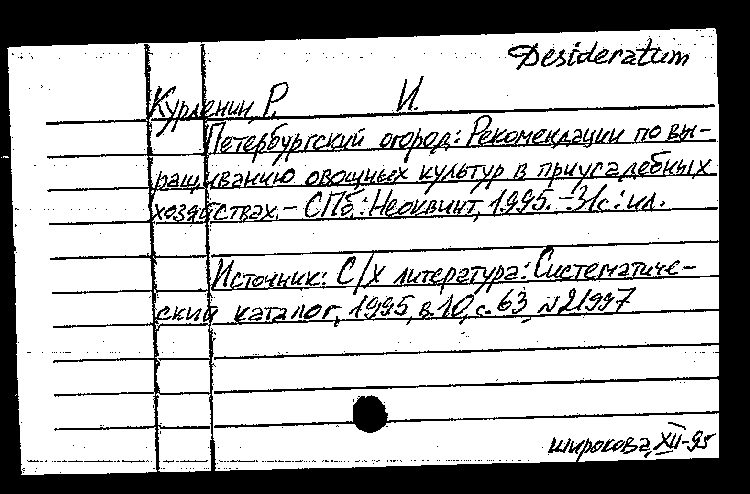 Desideratum
Курленин, Р. И.
Петербургский огород: Рекомендации по вы-
ращиванию овощных культур в приусадебных
хозяйствах. - СПб.: Неоквинт, 1995. - 31с.: ил.
Источник: С/х литература: Систематиче-
ский каталог, 1995, в.10, с.63, №21997
Широкова, XII-95